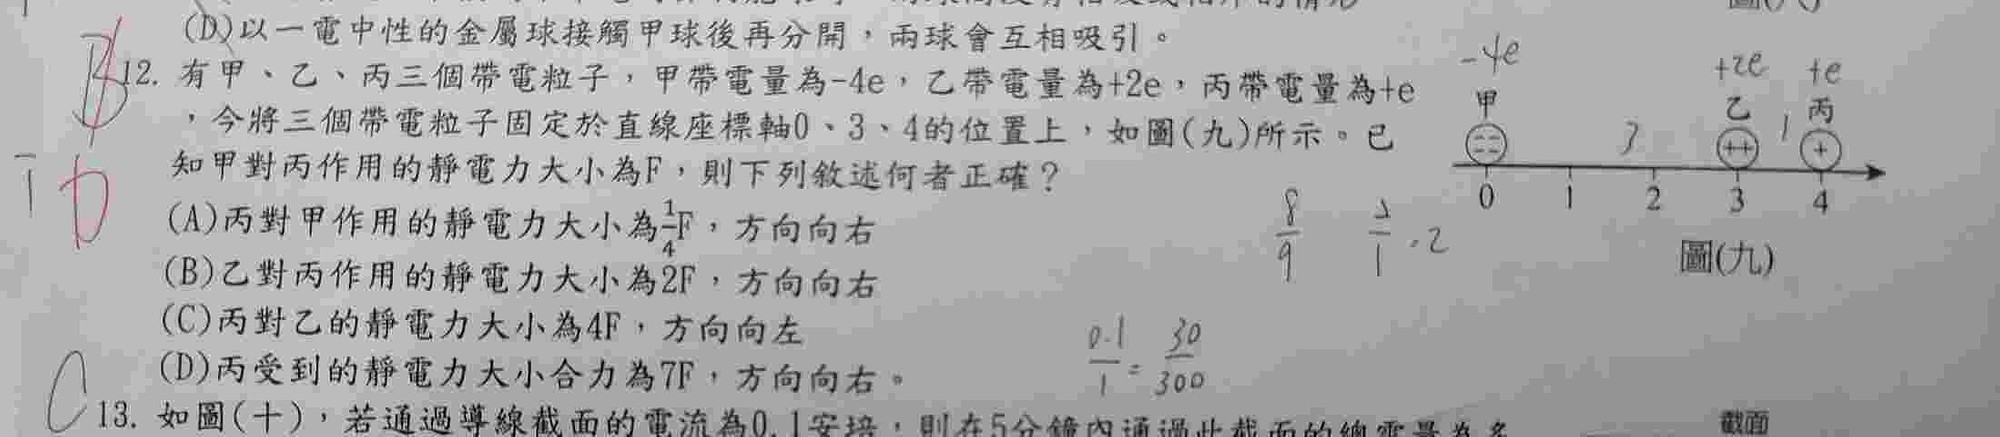 (D)以一電中性的金屬球接觸甲球後再分開，兩球會互相吸引。
12. 有甲、乙、丙三個帶電粒子，甲帶電量為-4e，乙帶電量為+2e，丙帶電量為+e
，今將三個帶電粒子固定於直線座標軸0、3、4的位置上，如圖(九)所示。已
知甲對丙作用的靜電力大小為F，則下列敘述何者正確？
(A)丙對甲作用的靜電力大小為1/4F，方向向右
(B)乙對丙作用的靜電力大小為2F，方向向右
(C)丙對乙的靜電力大小為4F，方向向左
(D)丙受到的靜電力大小合力為7F，方向向右。
13. 如圖(十)，若通過導線截面的電流為0.1安培，則在5分鐘內通過此截面的總電量為多
-4e +2e +e
甲 乙 丙
-- -- ++ +
3 1
0 1 2 3 4
圖(九)
8/9 2/1 .2
0.1/1 = 30/300
B
D
C
截面